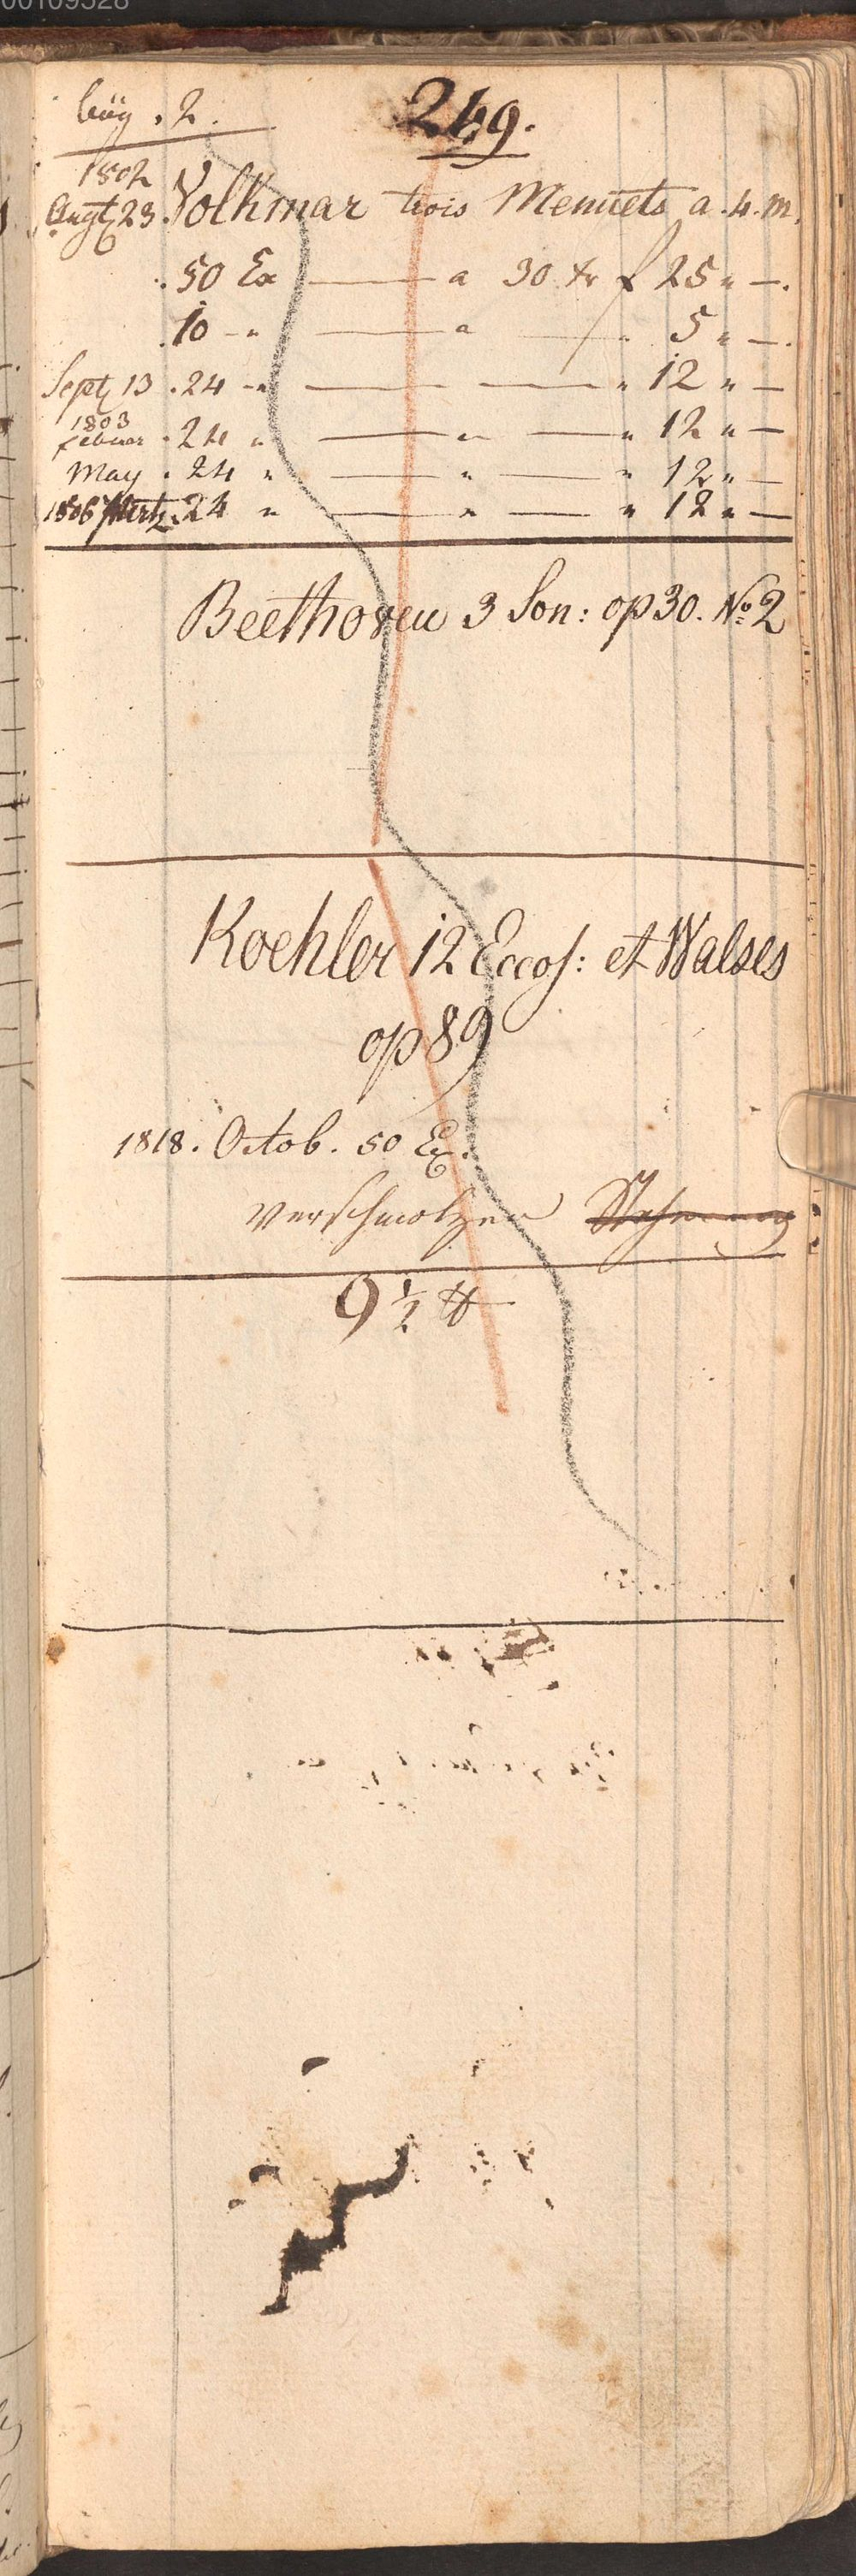 00109528
büg . 2.
249.
1802
Augt 23 Volkmar trois Menuets a . 4 . m.
. 50 Ex — a 30 xr f 25 " —.
. 10 - " — a — " 5 " —.
Sept 13 . 24 - " — — " 12 " —
1803
Februar . 24 " — " — " 12 " —
May . 24 " — " — " 12 " —
1806 Mertz . 24 " — " — " 12 " —
Beethoven 3 Son: op 30. No 2
Koehler 12 Eccos: et Walses
op 89
1818. Octob. 50 Ex.
Verschmolzen
9 ½ ℔